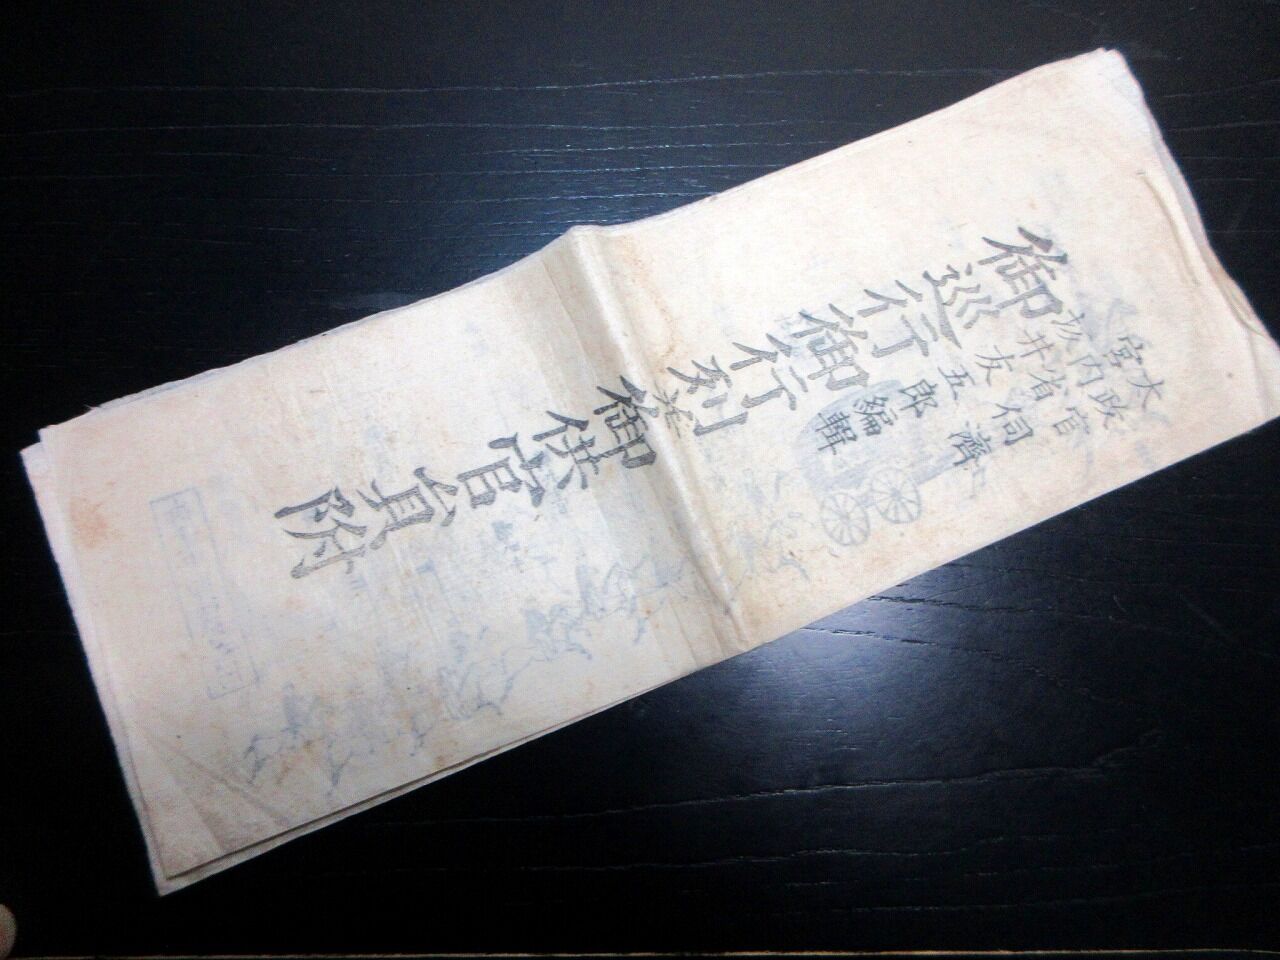 大政官
宮内省
伺濟
坂井友五郎編輯
御巡行御行列並御供官員附